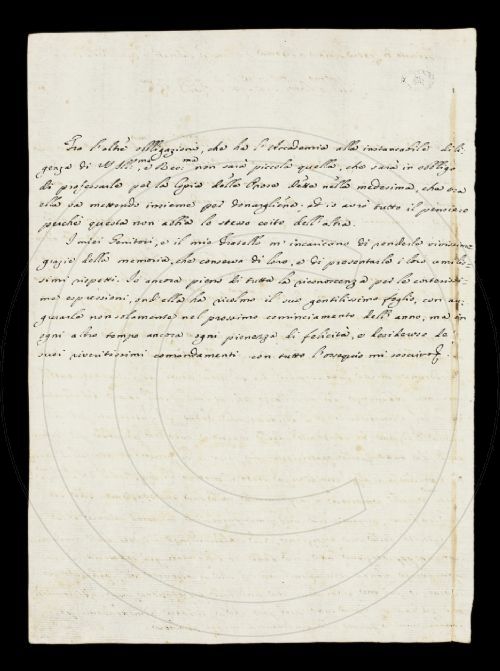 Fra l'altre obbligazioni, che ha l'Accademia alla instancabile dili-
genza di V.S. Ill.ma, e Rev.ma non sarà piccola quella, che sarà in obbligo
di professarle per la Copia delle Prose dette nella medesima, che ora
ella va mettendo insieme per donargliene. ed io avrò tutto il pensiero
perché questa non abbia lo stesso esito dell'altra.
I miei Genitori, e il mio Fratello m'incaricano di renderle vivissime
grazie della memoria, che conserva di loro, e di presentarle i loro umilis-
simi rispetti. Io ancora pieno di tutta la riconoscenza per le cortesissi-
me espressioni, ond'ella ha ricolmo il suo gentilissimo foglio, con au-
gurarle non solamente nel prossimo cominciamento dell'anno, ma in
ogni altro tempo ancora ogni pienezza di felicità, e desideroso de'
suoi riveritissimi comandamenti con tutto l'ossequio mi